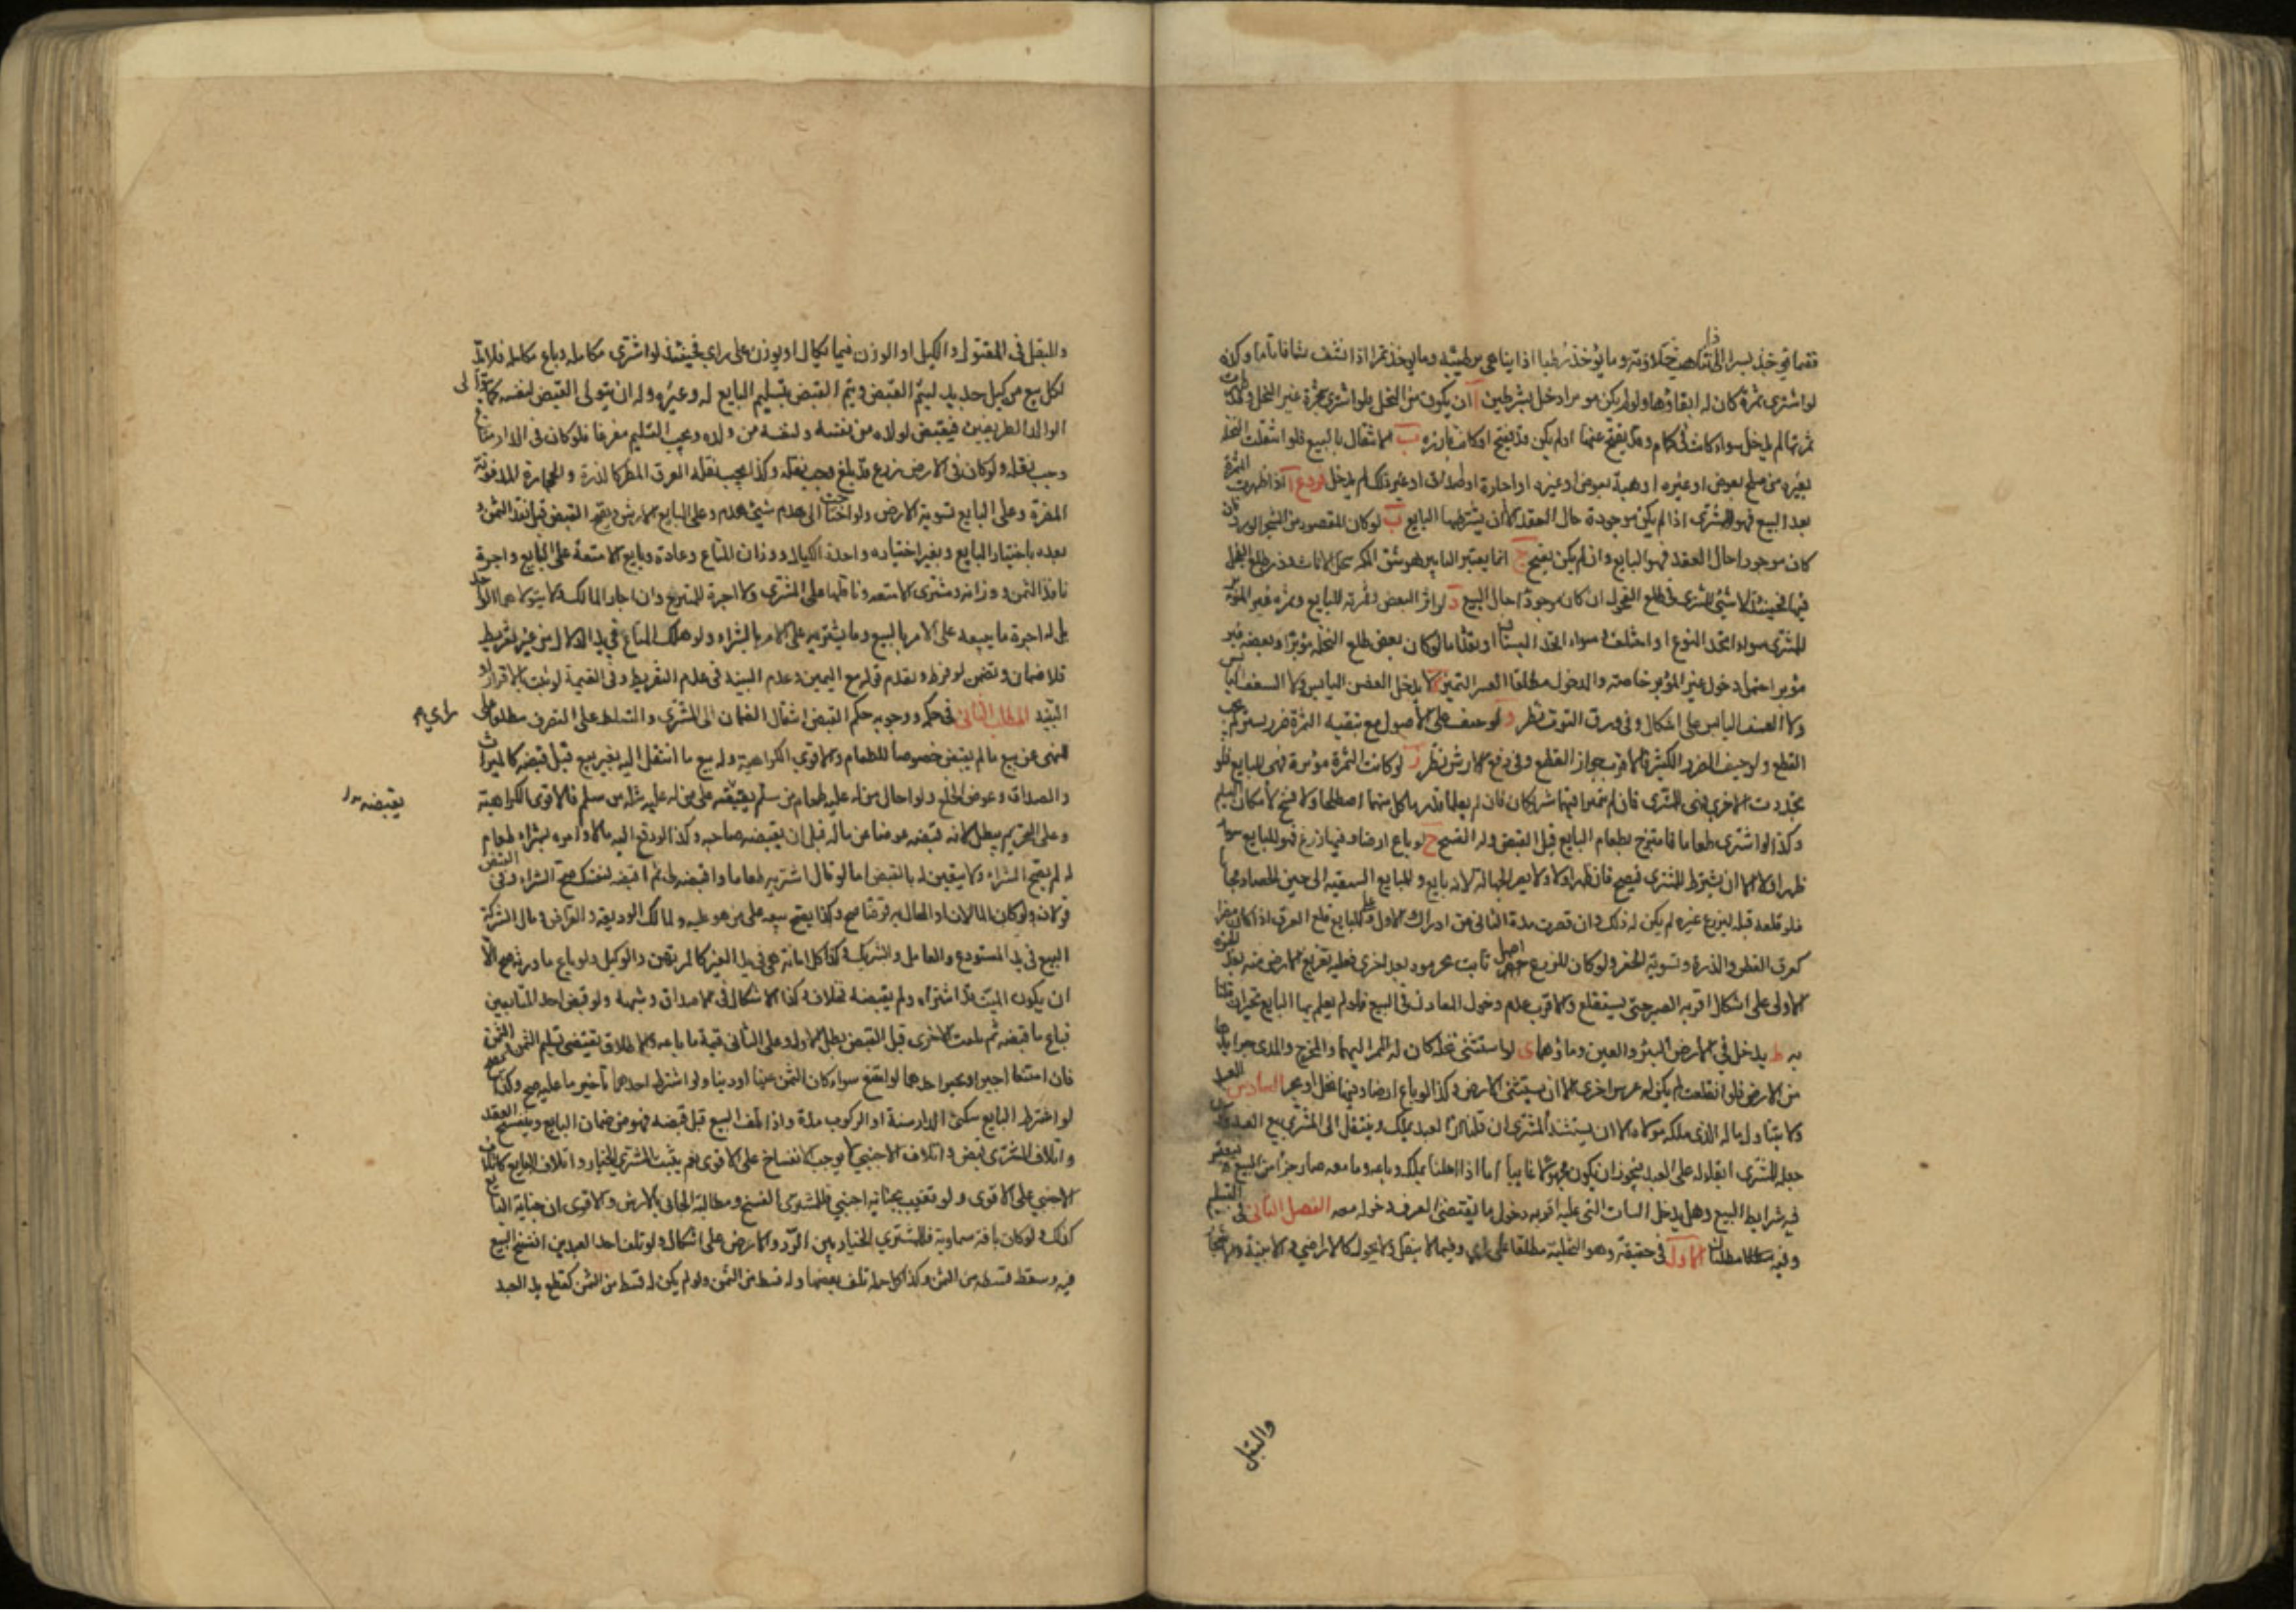 فما يؤخذ بسرا اذا تناهت حلاوته وما يؤخذ رطبا اذا تناهى ترطيبه وما يؤخذ تمرا اذا نشف نشافا تاما وكذا
لو اشترى ثمرة كان له ابقاؤها ولو لم يكن مؤبرا دخل بشرطين ا ان يكون من النخل فلو اشترى شجرة غير النخل وقد ظهرت
ثمرتها لم يدخل سواء كانت في كمام وقد تفتح عنها او لم يكن قد تفتح او كانت بارزة ب الانتقال بالبيع فلو انتقلت النخلة
بغيره من صلح بعوض او غيره او هبة بعوض او غيره او اجارة او صداق او غير ذلك لم يدخل فروع ا لو ظهرت الثمرة
بعد البيع فهو للمشتري اذا لم يكن موجودة حال العقد الا ان يشترطها البايع ب لو كان المقصود من الشجر الورد فان
كان موجودا حال العقد فهو للبايع وان لم يكن تفتح ج انما يعتبر التابير وهو شق اكمة الاناث وذر طلع الفحل
فيها فحينئذ لا شيء للمشتري في طلع الفحول ان كان موجودا حال البيع د لو ابر البعض فثمرته للبايع وثمرة غير المؤبر
للمشتري سواء اتحد النوع او اختلف وسواء اتحد البستان او تعدد اما لو كان بعض طلع النخلة مؤبرا وبعضه غير
مؤبر احتمل دخول غير المؤبر خاصة وعدم الدخول مطلقا لعسر التمييز ه لا يدخل الغصن اليابس ولا السعف اليابس
ولا العسف اليابس على اشكال وفي ورق التوت نظر و لو خيف على الاصول مع تبقية الثمرة ضرر يسير لم يجب
القطع ولو خيف الضرر الكثير فالاقرب جواز القطع وفي دفع الارش نظر ز لو كانت الثمرة مؤبرة فهي للبايع فلو
تجددت اخرى فهي للمشتري فان لم تميزا فهما شريكان فان لم يعلما قدر ما لكل منهما اصطلحا ولا فسخ لامكان التسليم
وكذا لو اشترى طعاما فامتزج بطعام البايع قبل القبض وله الفسخ ح لو باع ارضا وفيها زرع فهو للبايع سواء
ظهر او لا الا ان يشترط للمشتري فيصح فان ظهر او لا ولا يضر الجهالة لانه تابع وللبايع التبقية الى حين الحصاد مجانا
فلو قلعه قبله ليزرع غيره لم يكن له ذلك وان قصرت مدة الثاني عن ادراك الاول وعلى البايع قلع العرق اذا كان مضرا
كعرق القطن والذرة وتسوية الحفر ولو كان للزرع اصل ثابت يجز مرة بعد اخرى فعليه تفريغ الارض منه بعد الجزة
الاولى على اشكال اقربه الصبر حتى يستقلع والاقرب عدم دخول المعادن في البيع فلو لم يعلم بها البايع تخير ان قلنا
به ط يدخل في الارض البئر والعين وماؤهما ى لو استثنى نخلة كان له الممر اليها والمخرج ومدى جرايدها
من الارض فلو انقلعت لم يكن له غرس اخرى الا ان يستثني الارض وكذا لو باع ارضا وفيها نخل او شجر السادس العبد
ولا يتناول ماله الذي ملكه مولاه الا ان يستثنيه المشتري ان قلنا ان العبد يملك وينتقل الى المشتري مع العبد وكان
جعله للمشتري ابقاء له على العبد فيجوز ان يكون مجهولا غايبا اما اذا احلنا تملكه وباعه وما معه صار جزءا من المبيع فيعتبر
فيه شرايط البيع وهل يدخل الثياب التي عليه اقربه دخول ما يقتضي العرف دخوله معه الفصل الثاني في التسليم
وفيه مطلبان الاول في حقيقته وهو التخلية مطلقا على راي وفيما لا ينقل ولا يحول كالاراضي والابنية والاشجار
والنقل
والنقل في المنقول والكيل او الوزن فيما يكال او يوزن على راي فحينئذ لو اشترى مكايلة وباع مكايلة فلا بد
لكل بيع من كيل جديد ليتم القبض ويتم القبض بتسليم البايع له وغيره وله ان يتولى القبض لنفسه كما يتولى
الوالد الطرفين فيقبض لولده من نفسه ولنفسه من ولده ويجب التسليم مفرغا فلو كان في الدار متاع
وجب نقله ولو كان في الارض زرع قد بلغ وجب نقله وكذا يجب نقل العرق المضر كالذرة والحجارة المدفونة
المضرة وعلى البايع تسوية الارض ولو احتاجت الى هدم شيء هدم وعلى البايع الارش ويصح القبض قبل نقد الثمن و
بعده باختيار البايع وبغير اختياره واجرة الكيال ووزان المتاع وعاده وبايع الامتعة على البايع واجرة
ناقد الثمن ووزانه ومشتري الامتعة وناقلها على المشتري ولا اجرة للمتبرع وان اجاز المالك ولا يتولاهما الواحد
بل له اجرة ما يبيعه على الامر بالبيع وما يشتريه على الامر بالشراء ولو هلك المتاع في يد الدلال من غير تفريط
فلا ضمان ويضمن لو فرط ويقدم قوله مع اليمين وعدم البينة في عدم التفريط وفي القيمة لو ثبت بالاقرار او
البينة المطلب الثاني في حكمه ووجوبه حكم القبض انتقال الضمان الى المشتري والتسلط على التصرف مطلقا على راي
النهي عن بيع ما لم يقبض خصوصا الطعام والاقوى الكراهية وله بيع ما انتقل اليه بغير بيع قبل قبضه كالميراث
والصداق وعوض الخلع ولو احال من له عليه طعام من سلم بقبضه على من له عليه مثله من سلم فالاقوى الكراهية
يقبضه
وعلى التحريم يبطل لانه قبضه عوضا عن ماله قبل ان يقبضه صاحبه وكذا لو دفع اليه مالا وامره بشراء طعام
له لم يصح الشراء ولا يتعين له بالقبض اما لو قال اشتر به طعاما واقبضه لي ثم اقبضه لنفسك صح الشراء وفي القبض
قولان ولو كان المالان او المحال به قرضا صح وكذا يصح بيعه على من هو عليه ولمالك الوديعة والقراض ومال الشركة
البيع في يد المستودع والعامل والشريك وكذا كل امانة هي في يد الغير كالمرتهن والوكيل ولو باع ما ورثه صح الا
ان يكون الميت قد اشتراه ولم يقبضه فخلاف وكذا الاشكال في الاصداق وشبهه ولو قبض احد المتبايعين
فباع ما قبضه ثم تلفت الاخرى قبل القبض بطل الاول وعلى الثاني قيمة ما باعه والاطلاق يقتضي تسليم الثمن والمثمن
فان امتنعا اجبرا ويجبر احدهما لو امتنع سواء كان الثمن عينا او دينا ولو اشترط احدهما تاخير ما عليه صح وكذا
لو اشترط البايع سكنى الدار سنة او الركوب مدة واذا تلف المبيع قبل قبضه فهو من ضمان البايع وينفسخ العقد
واتلاف المشتري قبض واتلاف الاجنبي لا يوجب الانفساخ على الاقوى نعم يثبت للمشتري الخيار واتلاف البايع كاتلاف
الاجنبي على الاقوى ولو تعيب بجناية اجنبي فللمشتري الفسخ ومطالبة الجاني بالارش والاقوى ان جناية البايع
كذلك ولو كان بافة سماوية فللمشتري الخيار بين الرد والارش على اشكال ولو تلف احد العبدين انفسخ البيع
فيه وسقط قسطه من الثمن وكذا كل جملة تلف بعضها وله قسط من الثمن ولو لم يكن له قسط من الثمن كقطع يد العبد